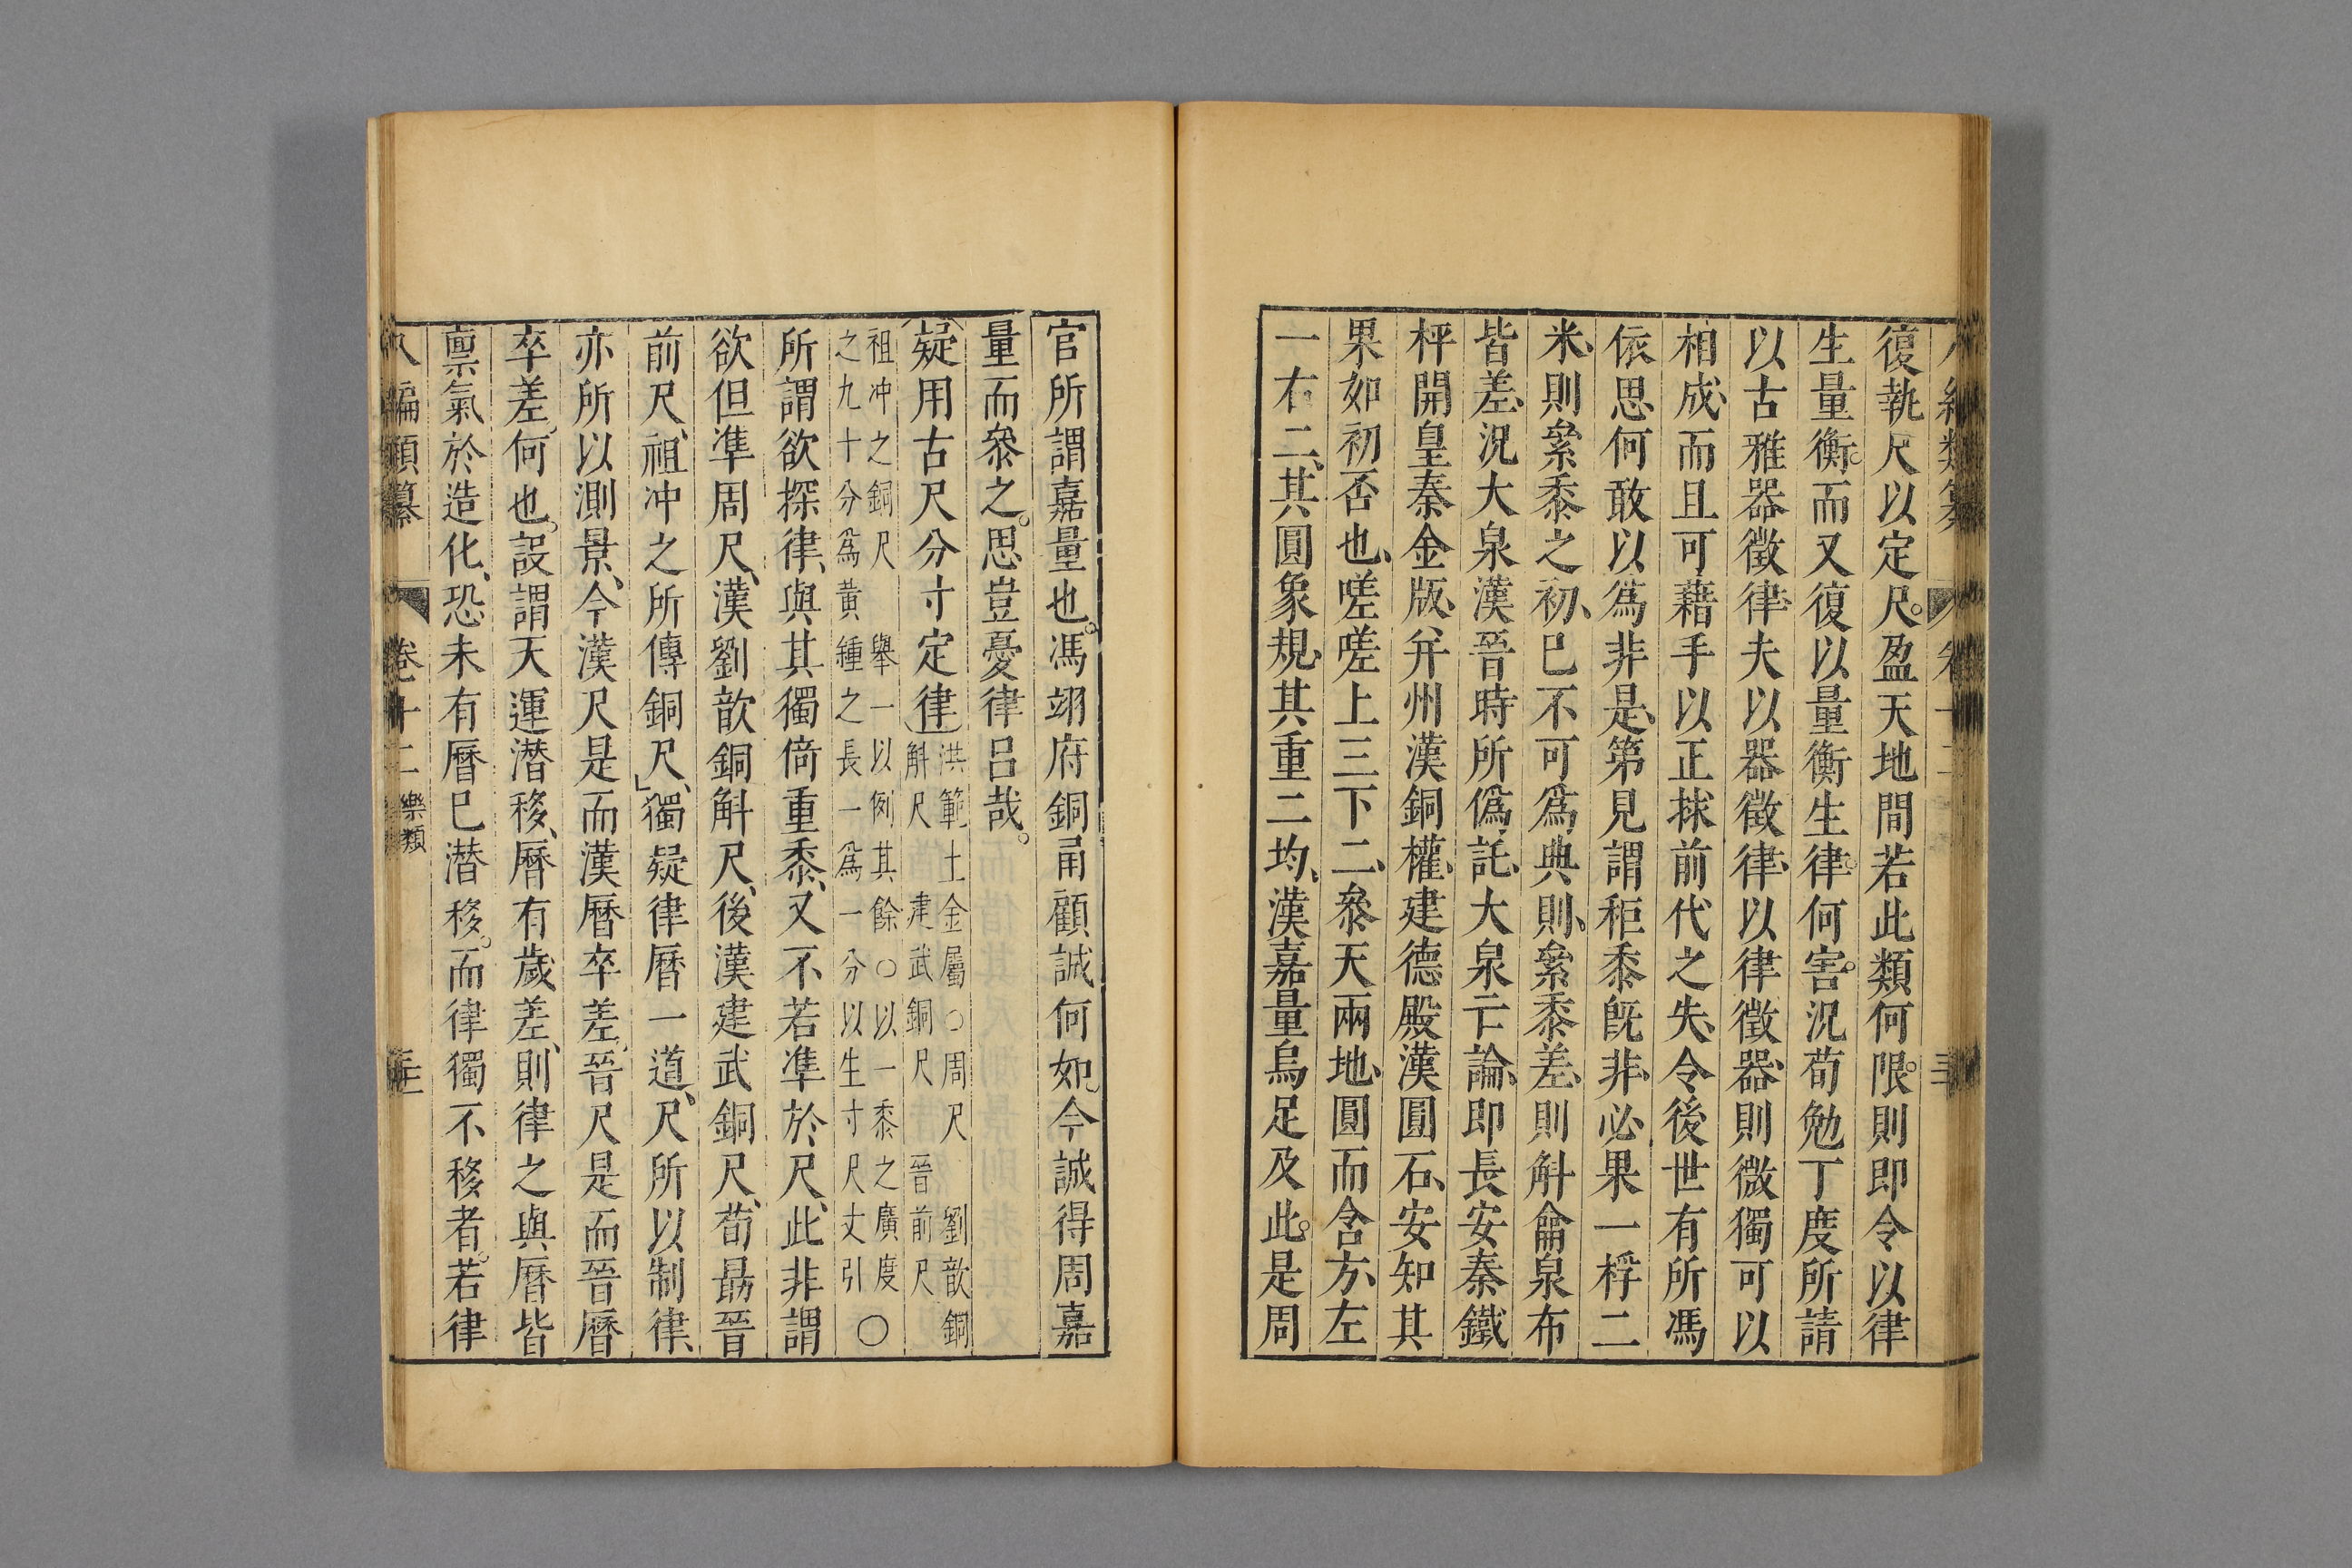 復執尺以定尺。盈天地間若此類何限。則即令以律
生量衡。而又復以量衡生律。何害。況荀勉丁度所請
以古雅器徵律、夫以器徵律、以律徵器、則微獨可以
相成、而且可藉手以正捄前代之失、令後世有所馮
依思、何敢以為非是、第見謂秬黍旣非、必果一稃二
米、則絫黍之初、已不可為典則、絫黍差、則斛龠泉布
皆差、況大泉漢晉時所偽託、大泉亡論、即長安秦鐵
枰開皇秦金版、幷州漢銅權、建德殿漢圓石、安知其
果如初否也、嗟嗟上三下二、參天兩地、圓而含方、左
一右二、其圓象規、其重二均、漢嘉量烏足及此。是周
官所謂嘉量也。馮翊府銅甬顧誠何如。今誠得周嘉
量而叅之。思豈憂律呂哉。
疑用古尺分寸定律 洪範土金屬○周尺 劉歆銅
斛尺 建武銅尺 晉前尺
祖冲之銅尺 舉一以例其餘○以一黍之廣度
之九十分為黃鍾之長一為一分以生寸尺丈引 ○
所謂欲探律、與其獨倚重黍、又不若凖於尺、此非謂
欲但凖周尺、漢劉歆銅斛尺、後漢建武銅尺、荀勗晉
前尺、祖冲之所傳銅尺、獨疑律曆一道、尺所以制律、
亦所以測景、今漢尺是而漢曆卒差、晉尺是而晉曆
卒差、何也。設謂天運潜移、曆有歲差、則律之與曆皆
禀氣於造化、恐未有曆已潜移。而律獨不移者。若律
八編類纂 卷十二 樂類